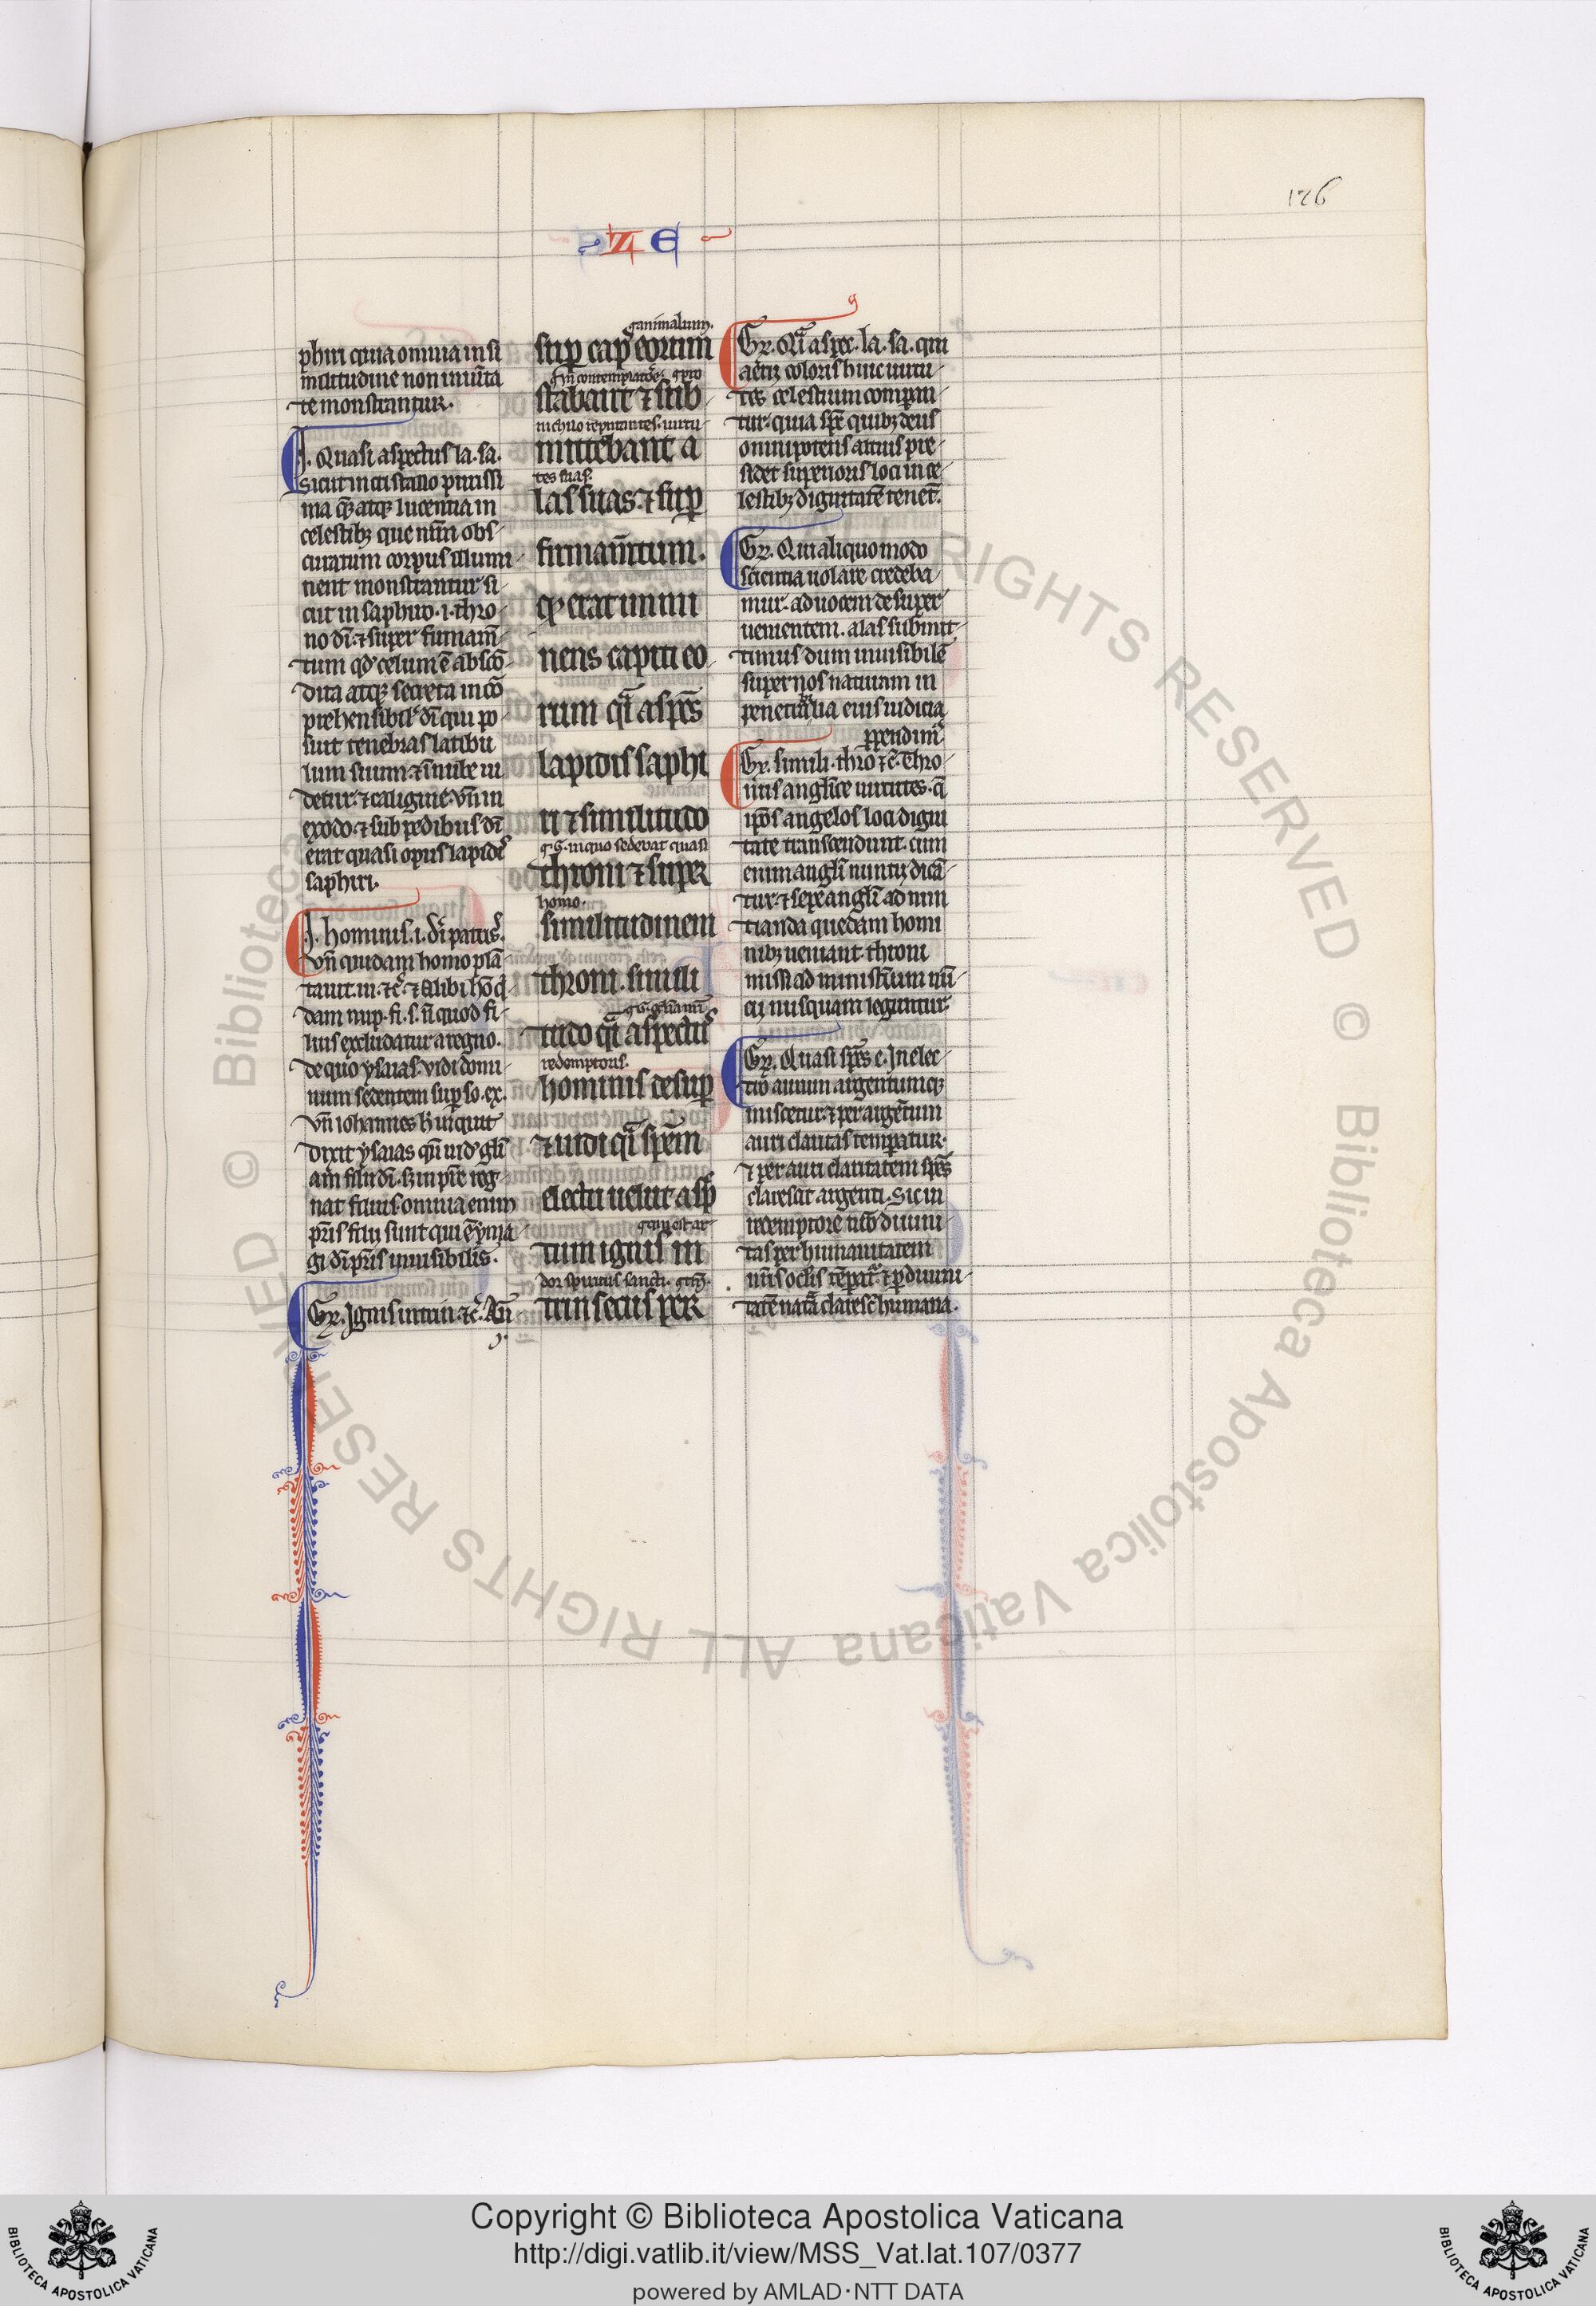 176
ZE
phiri quia omnia in si
militudine non in uita
te monstrantur.
J. Quasi aspectus la. sa.
Sicut in cristallo purissi
ma q̄q; atq; lucentia in
celestib; que nr̄m obs
curatum corpus illumi
nent monstrantur si
cut in saphiro .i. thro
no dī. ⁊ super firmam̄
tum qd̓ celum ē abscō
dita atq; secreta in cō
prehensibil̓ dī qui po
suit tenebras latibu
lum suum. ⁊ ī nube ui
detur. ⁊ caligine. Vn̄ in
exodo. ⁊ sub pedibus dī
erat quasi opus lapidꝭ
saphiri.
J. hominis .i. dī patris.
vn̄ quidam homo plā
tauit. ui. ⁊c̄. ⁊ alibi hō q̇
dam nup. fi. s. ñ quod fi
lius excludatur a regno.
de quo ysaias. vidi domi
num sedentem sup so. ex.
Vn̄ iohannes h̄ inquit
dixit ysaias qn̄ uid̓ gl̄i
am filii dī. sꝫ in pr̄e reg
nat filius. omnia enim
pr̄is filii sunt qui ē yma
go dī pr̄is inuisibilis.
Gr̄. Ignis intrin. ⁊c̄. An̄
g animalium.
sup cap̄ eorum
stabant ⁊ sub
nichilo reputantes. uirtu
mittebant a
tes suas.
las suas. ⁊ sup
firmam̄tum.
qd̓ erat immi
nens capiti eo
rum q̄i aspc̄s
lapidis saphi
ri ⁊ similitudo
in quo sedebat quasi
throni ⁊ super
homo.
similitudinem
throni. simili
tudo q̄i aspectus
redemptoris.
hominis desup
⁊ uidi q̄i spēm
electri uelut asp̄
g qui est ar
tum ignis in
dor spiritus sancti.
trinsecus per
Gr̄. Q̄i aspec. la. sa. qui
aerii coloris hinc uirtu
tes celestium compan
tur. quia sp̄e quib; deus
omnipotens altius pre
sidet superioris loci in ce
lestib; dignitatē tenet.
Gr̄. Qui aliquo modo
scientia uolare credeba
mur. ad uocem desuper
uenientem. alas submit
timus dum inuisibilē
super nos naturam in
penetralia eius iudicia
ꝑpendim̓
Gr̄. simili. thro ⁊c̄. Thro
ni sūt anglīce uirtutes. q̄
ip̄os angelos loci digni
tate transcendunt. cum
enim angl̄i nuntii dicā
tur. ⁊ sepe angl̄i ad nun
tianda quedam homi
nib; ueniant. throni
missi ad ministerium nūī
cii nusquam leguntur.
Gr̄. Quasi spēs e. In elec
tro aurum argentumq;
miscetur. ⁊ per argētum
auri claritas temperatur.
⁊ per auri claritatem spēs
clarescit argenti. Sic in
redemptore nr̄o diuini
tas per humanitatem
nr̄is oclīs tēperat̓. ⁊ ꝑ diuini
tatē nat̄a clarescit humana.
Copyright © Biblioteca Apostolica Vaticana
http://digi.vatlib.it/view/MSS_Vat.lat.107/0377
powered by AMLAD·NTT DATA
BIBLIOTECA APOSTOLICA VATICANA
BIBLIOTECA APOSTOLICA VATICANA
© Biblioteca Apostolica Vaticana ALL RIGHTS RESERVED